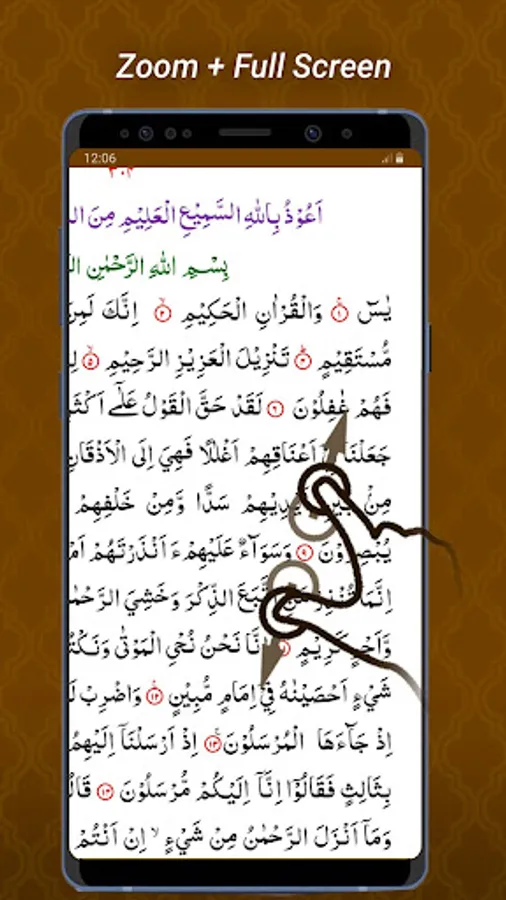 Zoom + Full Screen
12:06
اَعُوْذُ بِاللّٰهِ السَّمِيْعِ الْعَلِيْمِ مِنَ
بِسْمِ اللّٰهِ الرَّحْمٰنِ
يٰسٓ ۝١ وَالْقُرْاٰنِ الْحَكِيْمِ ۝٢ اِنَّكَ لَمِنَ
مُّسْتَقِيْمٍ ۝٤ تَنْزِيْلَ الْعَزِيْزِ الرَّحِيْمِ ۝٥
فَهُمْ غٰفِلُوْنَ ۝٦ لَقَدْ حَقَّ الْقَوْلُ عَلٰٓى اَكْثَ
جَعَلْنَا اَعْنَاقِهِمْ اَغْلٰلًا فَهِيَ اِلَى الْاَذْقَانِ
مِنْۢ بَيْنِ اَيْدِيْهِمْ سَدًّا وَّمِنْ خَلْفِهِمْ
يُبْصِرُوْنَ ۝٩ وَسَوَآءٌ عَلَيْهِمْ ءَاَنْذَرْتَهُمْ اَمْ
اِنَّمَا تُنْذِرُ مَنِ اتَّبَعَ الذِّكْرَ وَخَشِيَ الرَّحْمٰ
وَّاَجْرٍ كَرِيْمٍ اِنَّا نَحْنُ نُحْيِ الْمَوْتٰى وَنَكْتُ
شَيْءٍ اَحْصَيْنٰهُ فِيْٓ اِمَامٍ مُّبِيْنٍ ۝١٢ وَاضْرِبْ
اِذْ جَآءَهَا الْمُرْسَلُوْنَ ۝١٣ اِذْ اَرْسَلْنَآ اِلَيْهِمُ
بِثَالِثٍ فَقَالُوْٓا اِنَّآ اِلَيْكُمْ مُّرْسَلُوْنَ ۝١٤ قَالُ
وَمَآ اَنْزَلَ الرَّحْمٰنُ مِنْ شَيْءٍ ۙ اِنْ اَنْتُمْ